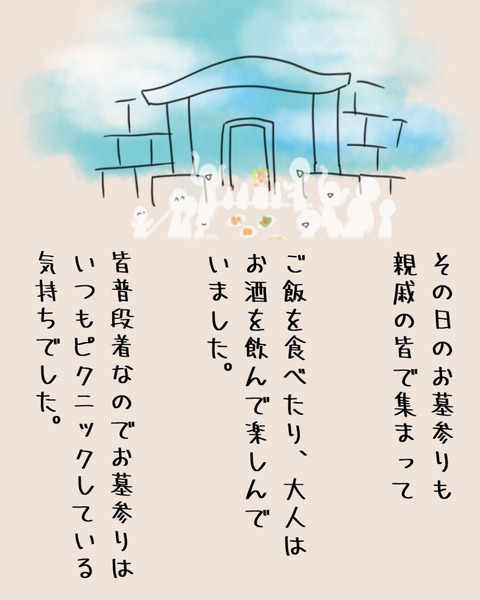 その日のお墓参りも
親戚の皆で集まって
ご飯を食べたり、大人は
お酒を飲んで楽しんで
いました。
皆普段着なのでお墓参りは
いつもピクニックしている
気持ちでした。